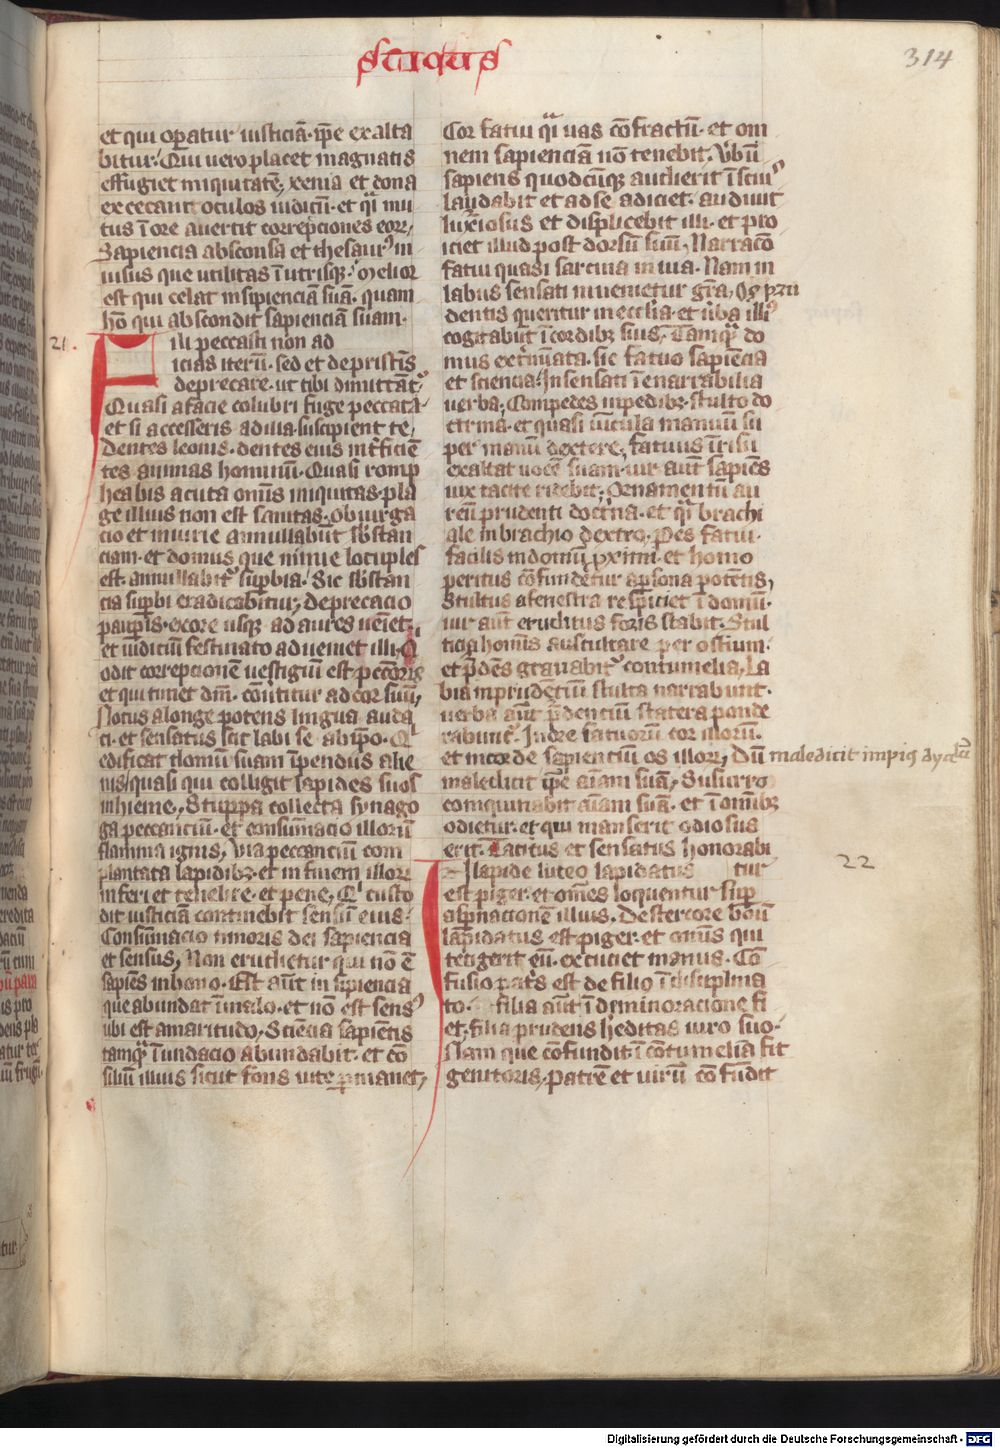 sticus
314
et qui operatur iusticiā· ip̄e exalta
bitur· Qui vero placet magnatis
effugiet iniquitatē, xenia et dona
excecant oculos iudicū· et q̄i mu
tus ī ore auertit correpciones eorꝝ
Sapiencia absconsa et thesaurꝰ in
uisus que utilitas ī utrisqꝫ· Melior
est qui celat insipienciā suā· quam
hō qui abscondit sapienciā suam·
21.
Fili peccasti non ad
icias iterū· sed et de pristīs
deprecare· ut tibi dimittātᷣ
Quasi a facie colubri fuge peccata
et si accesseris ad illa suscipient te,
Dentes leonis· dentes eius int̄ficiē
tes animas hominū· Quasi romp
hea bis acuta om̄is iniquitas· pla
ge illius non est sanitas· Obiurga
cio et iniurie annullabūt sb̄stan
ciam· et domus que nimie locuples
est· annullabitᷣ suꝑbia· Sic sb̄stan
cia suꝑbi eradicabitur, deprecacio
pauꝑis· ex ore usqꝫ ad aures ueiet·
et iudiciū festinato adueniet illi, Q
odit correpcionē uestigiū est pctōris
et qui timet dm̄· cōutitur ad cor suū,
Notus a longe potens lingua auda
ci· et sensatus scit labi se ab ip̄o· Q
edificat domū suam īpendiis alie
nis/ quasi qui colligit lapides suos
in hieme, Stuppa collecta synago
ga peccanciū· et consūmacio illorū
flamma ignis, Via peccanciū com
plantata lapidibꝫ· et in finem illorꝝ
inferi et tenebre· et pene, Q custo
dit iusticiā continebit sensū eius·
Consūmacio timoris dei sapiencia
et sensus, Non erudietur qui nō ē
sapiēs in bono· Est aūt insipiencia
que abundat ī malo· et nō est sensꝰ
ubi est amaritudo· Sciēcia sapiētis
tamq̄ īundacio abundabit· et cō
siliū illius sicut fons uite ꝑmanet,
Cor fatui q̄i uas cōfractū· et om
nem sapienciā nō tenebit· Vbū
sapiens quodcūqꝫ audierit ī sciuꝰ
laudabit et ad se adiciet· audiuit
luxiosus et displicebit illi· et pro
iciet illud post dorsū suū· Narracō
fatui quasi sarcina in uia· Nam in
labiis sensati inuenietur gr̄a, Os pru
dentis queritur in ecclīa· et ūba illiꝰ
cogitabūt ī cordibꝫ suis, Tamq̄ do
mus ext̄minata· sic fatuo sapiēcia
et sciencia Insensati īenarrabilia
uerba, Compedes inpedibꝫ· stulto do
ctrina· et quasi uīcula manuū su
per manū dextere, fatuus īrisu
exaltat uocē suam· uir aūt sapiēs
uix tacite ridebit, Ornamentū au
reū prudenti doct̄na· et q̄i brachi
ale in brachio dextro· Pes fatui·
facilis in domū ꝓximi· et homo
peritus cōfundetur a ꝑsona potētis,
Stultus a fenestra respiciet ī domū·
uir aūt eruditus foris stabit· Stul
ticia hominis auscultare per ostium·
et p̄dēs grauabitᷣ contumelia, La
bia inprudētiū stulta narrabunt·
uerba aūt p̄dentiū statera ponde
rabuntᷣ· In ore fatuorū cor illorū·
et in corde sapientiū os illorꝝ, Dū maledicit impiꝰ dyabolū
maledicit ip̄e aīam suā, Susurro
coinquinabit aīam suā· et ī omībꝫ
odietur· et qui manserit odiosus
erit· Tacitus et sensatus honorabi
tur
22
In lapide luteo lapidatus
est piger· et om̄es loquentur suꝑ
asꝑnacionē illius· De stercore boū
lapidatus est piger· et om̄is qui
tetigerit eū· excuciet manus· Cō
fusio pat̄s est de filio ī disciplina
to· filia aūt ī deminoracione fi
et, filia prudens h̄editas uiro suo·
Nam que cōfundit ī cōtumeliā fit
genitoris, Patrē et uirū cōfūdit
Digitalisierung gefördert durch die Deutsche Forschungsgemeinschaft - DFG